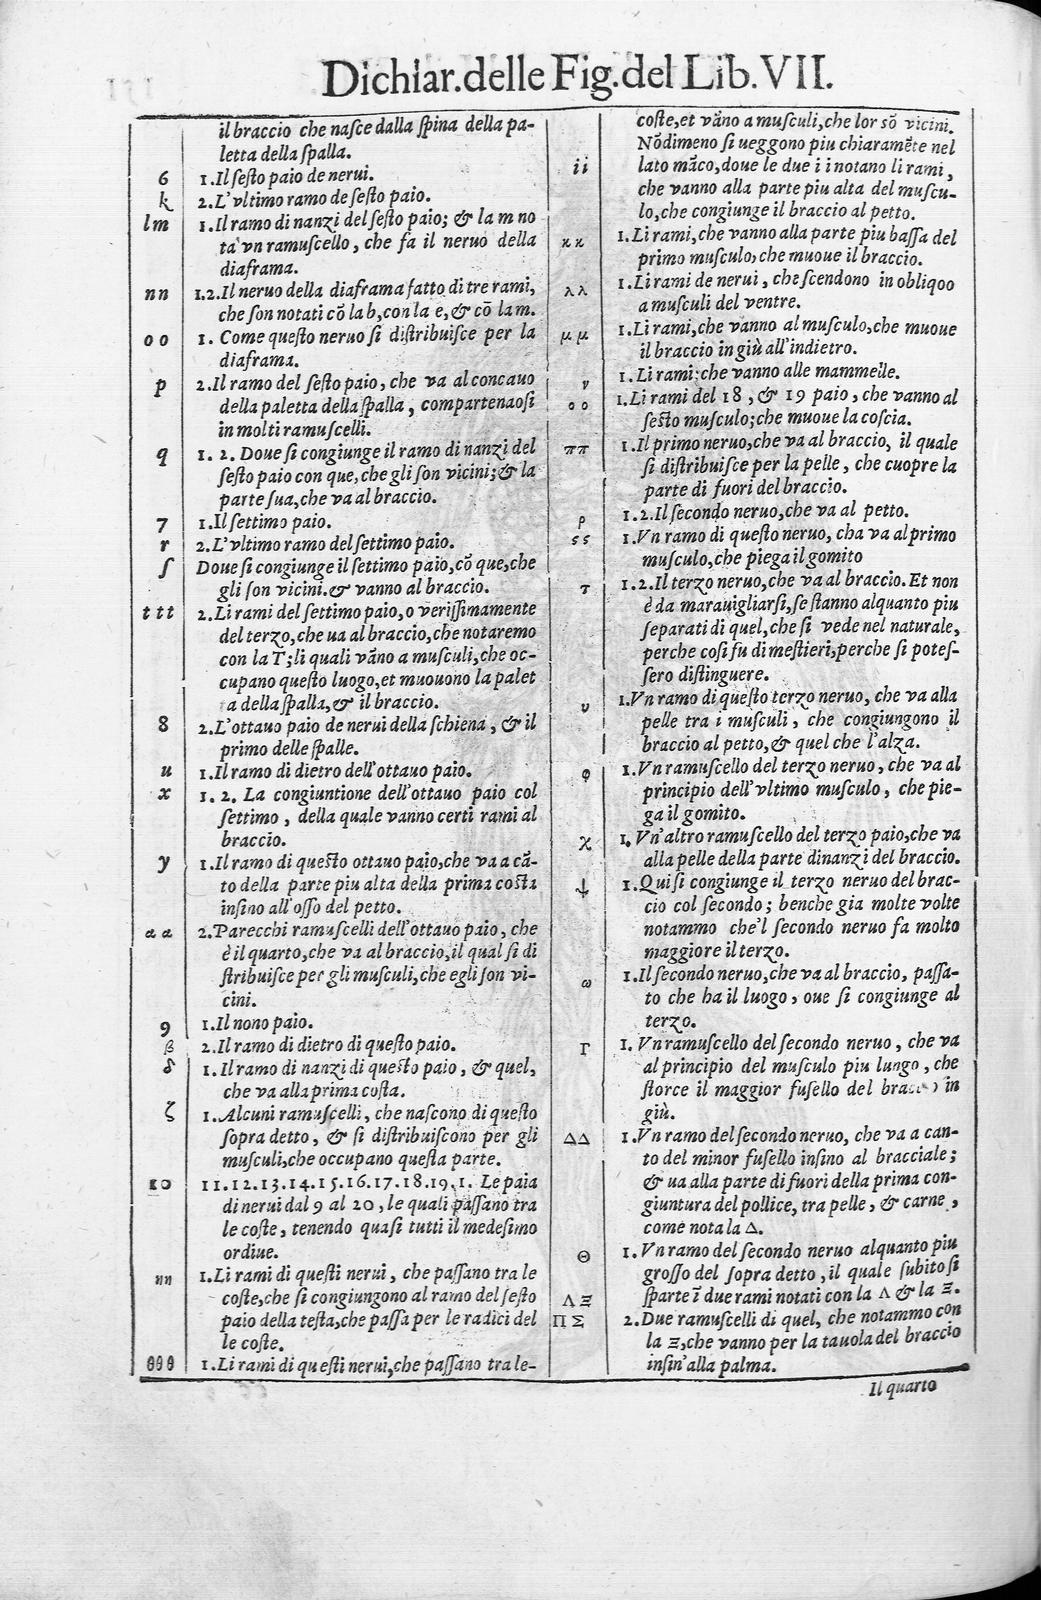 Dichiar. delle Fig. del Lib. VII.
il braccio che nasce dalla spina della pa-
letta della spalla.
6 1. Il sesto paio de nerui.
k 2. L'vltimo ramo de sesto paio.
lm 1. Il ramo di nanzi del sesto paio; & la m no
ta vn ramuscello, che fa il neruo della
diaframa.
nn 1.2. Il neruo della diaframa fatto di tre rami,
che son notati cõ la b, con la e, & cõ la m.
oo 1. Come questo neruo si distribuisce per la
diaframa.
p 2. Il ramo del sesto paio, che va al concauo
della paletta della spalla, compartenaosi
in molti ramuscelli.
q 1. 2. Doue si congiunge il ramo di nanzi del
sesto paio con que, che gli son vicini; & la
parte sua, che va al braccio.
7 1. Il settimo paio.
r 2. L'vltimo ramo del settimo paio.
ſ Doue si congiunge il settimo paio, cõ que, che
gli son vicini. & vanno al braccio.
ttt 2. Li rami del settimo paio, o verissimamente
del terzo, che ua al braccio, che notaremo
con la T; li quali vãno a musculi, che oc-
cupano questo luogo, et muouono la palet
ta della spalla, & il braccio.
8 2. L'ottauo paio de nerui della schiena, & il
primo delle spalle.
u 1. Il ramo di dietro dell'ottauo paio.
x 1. 2. La congiuntione dell'ottauo paio col
settimo, della quale vanno certi rami al
braccio.
y 1. Il ramo di questo ottauo paio, che va a cã-
to della parte piu alta della prima costa
insino all'osso del petto.
αα 2. Parecchi ramuscelli dell'ottauo paio, che
è il quarto, che va al braccio, il qual si di
stribuisce per gli musculi, che egli son vi-
cini.
9 1. Il nono paio.
β 2. Il ramo di dietro di questo paio.
δ 1. Il ramo di nanzi di questo paio, & quel,
che va alla prima costa.
ζ 1. Alcuni ramuscelli, che nascono di questo
sopra detto, & si distribuiscono per gli
musculi, che occupano questa parte.
10 11.12.13.14.15.16.17.18.19.1. Le paia
di nerui dal 9 al 20, le quali passano tra
le coste, tenendo quasi tutti il medesimo
ordiue.
ηη 1. Li rami di questi nerui, che passano tra le
coste, che si congiungono al ramo del sesto
paio della testa, che passa per le radici del
le coste.
θθθ 1. Li rami di questi nerui, che passano tra le-
coste, et vãno a musculi, che lor sõ vicini.
Nõdimeno si ueggono piu chiaramẽte nel
ii lato mãco, doue le due i i notano li rami,
che vanno alla parte piu alta del muscu-
lo, che congiunge il braccio al petto.
κκ 1. Li rami, che vanno alla parte piu bassa del
primo musculo, che muoue il braccio.
λλ 1. Li rami de nerui, che scendono in obliqoo
a musculi del ventre.
μμ 1. Li rami, che vanno al musculo, che muoue
il braccio in giù all'indietro.
ν 1. Li rami; che vanno alle mammelle.
οο 1. Li rami del 18, & 19 paio, che vanno al
sesto musculo; che muoue la coscia.
ππ 1. Il primo neruo, che va al braccio, il quale
si distribuisce per la pelle, che cuopre la
parte di fuori del braccio.
ρ 1.2. Il secondo neruo, che va al petto.
ςς 1. Vn ramo di questo neruo, cha va al primo
musculo, che piega il gomito
τ 1.2. Il terzo neruo, che va al braccio. Et non
è da marauigliarsi, se stanno alquanto piu
separati di quel, che si vede nel naturale,
perche cosi fu di mestieri, perche si potes-
sero distinguere.
υ 1. Vn ramo di questo terzo neruo, che va alla
pelle tra i musculi, che congiungono il
braccio al petto, & quel che l'alza.
φ 1. Vn ramuscello del terzo neruo, che va al
principio dell'vltimo musculo, che pie-
ga il gomito.
χ 1. Vn'altro ramuscello del terzo paio, che va
alla pelle della parte dinanzi del braccio.
ψ 1. Qui si congiunge il terzo neruo del brac-
cio col secondo; benche gia molte volte
notammo che'l secondo neruo fa molto
maggiore il terzo.
ω 1. Il secondo neruo, che va al braccio, passa-
to che ha il luogo, oue si congiunge al
terzo.
Γ 1. Vn ramuscello del secondo neruo, che va
al principio del musculo piu lungo, che
storce il maggior fusello del in
giù.
ΔΔ 1. Vn ramo del secondo neruo, che va a can-
to del minor fusello insino al bracciale;
& ua alla parte di fuori della prima con-
giuntura del pollice, tra pelle, & carne,
come nota la Δ.
Θ 1. Vn ramo del secondo neruo alquanto piu
grosso del sopra detto, il quale subito si
ΛΞ sparte ĩ due rami notati con la Λ & la Ξ.
ΠΣ 2. Due ramuscelli di quel, che notammo con
la Ξ, che vanno per la tauola del braccio
insin'alla palma.
Il quarto